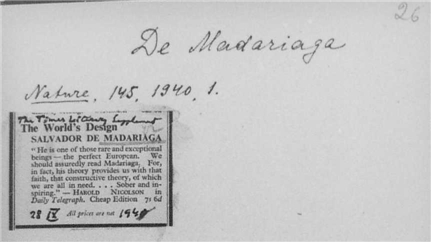 26
De Madariaga
Nature, 145, 1940, 1.
The Times Literary Supplement
The World's Design
SALVADOR DE MADARIAGA
"He is one of those rare and exceptional
beings — the perfect European. We
should assuredly read Madariaga, For,
in fact, his theory provides us with that
faith, that constructive theory, of which
we are all in need. . . . Sober and in-
spiring." — HAROLD NICOLSON in
Daily Telegraph. Cheap Edition 7s 6d
28 IX All prices are net 1940